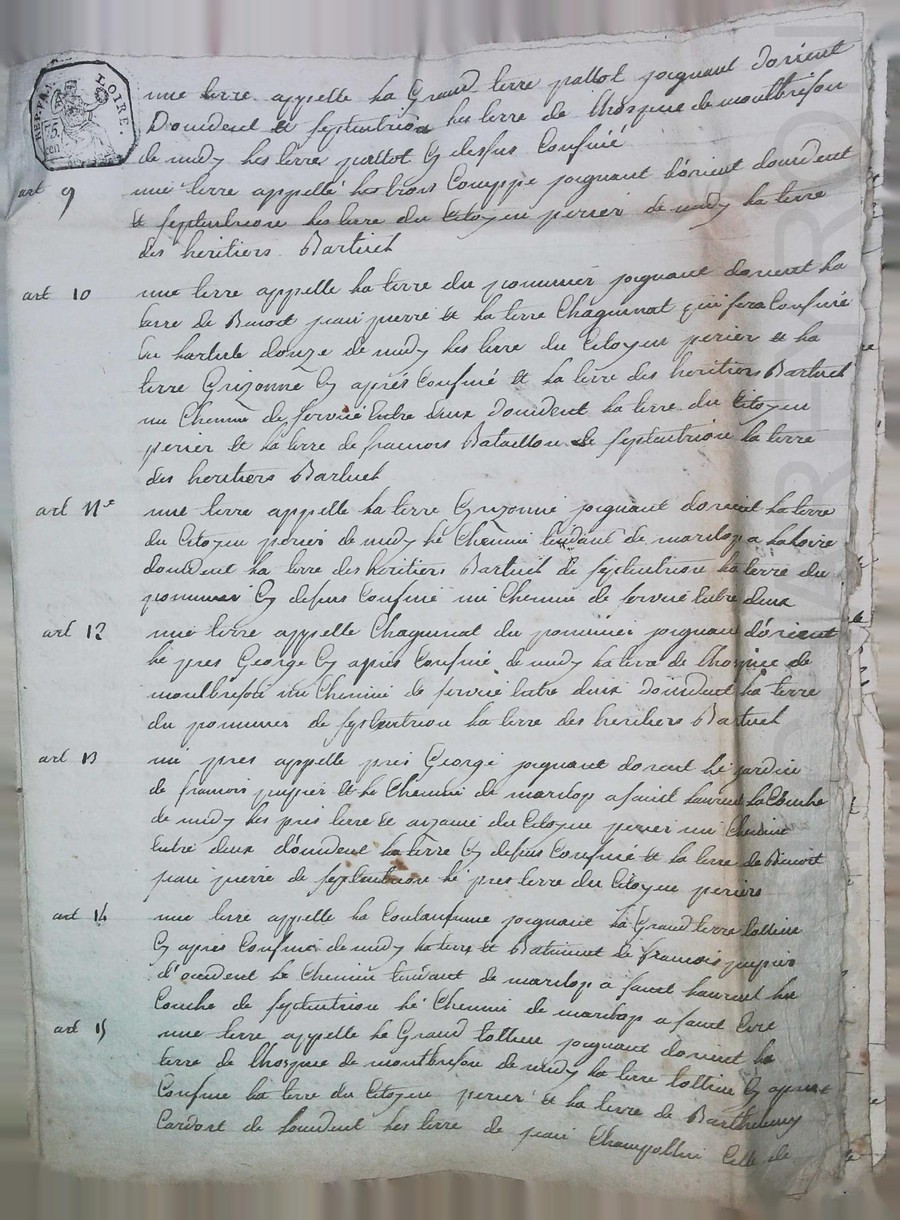 REP. FRA. LOIRE.
une terre appelle la Grand terre pallot joignant dorient
Doccident et septentrion les terre de lhospice de montbrison
de midy les terre pallot cy desus Confiné
art 9 une terre appellé les trois Couppe joignant d'orient doccident
et septentrion les terre du Citoyen perier de midy la terre
des heritiers Bartuel
art 10 une terre appelle la terre du pommier joignant dorient la
terre de Benoit jean pierre et la terre Chaguinat qui sera Confiné
en larticle douze de midy les terre du Citoyen perier et la
terre Grizonne cy aprés Confiné et la terre des heritiers Bartuel
un Chemin de servié Entre deux doccident la terre du Citoyen
perier et la terre de francois Bataillon de septentrion la terre
des heritiers Bartuel
art 11e une terre appelle la terre Grizonne joignant dorient la terre
du Citoyen perier de midy le Chemin tendant de marilop a la loire
doccident la terre des heritiers Bartuel de septentrion la terre du
pommier cy desus Confiné un Chemin de servié Entre deux
art 12 une terre appelle Chaguinat du pommier joignant d'orient
le pres George cy aprés Confiné de midy la terre de lhospice de
montbrison un Chemin de servié Entre deux doccident la terre
du pommier de septentrion la terre des heritiers Bartuel
art 13 un pres appelle pres George joignant dorient le jardin
de francois pupier et le Chemin de marilop a saint laurent la Conche
de midy les pres terre et du Citoyen perier un Chemin
Entre deux d'occident la terre cy desus Confiné et la terre de Benoit
jean pierre de septentrion le pres terre du Citoyen periers
art 14 une terre appelle la joignant la Grand terre lolliere
cy apres Confiné de midy la terre et Batiment de francois pupier
d'occident le Chemin tendant de marilop a saint laurent la
Conche de septentrion le Chemin de marilop a saint
art 15 une terre appelle la Grand lolliere joignant dorient la
terre de lhospice de montbrison de midy la terre lolliere cy apres
Confiné la terre du Citoyen perier et la terre de Barthelemy
de loccident les terre de jean Champollin Celle de